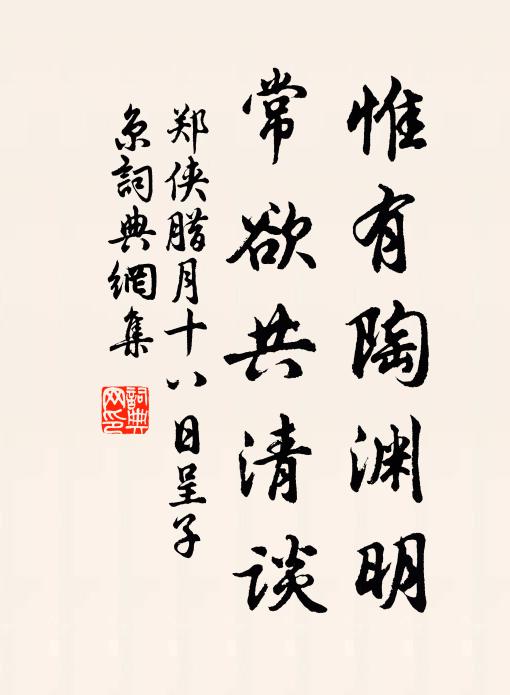 惟有陶渊明
常欲共清谈
郑侠腊月十八日呈子
京詞典網集
詞典
网印